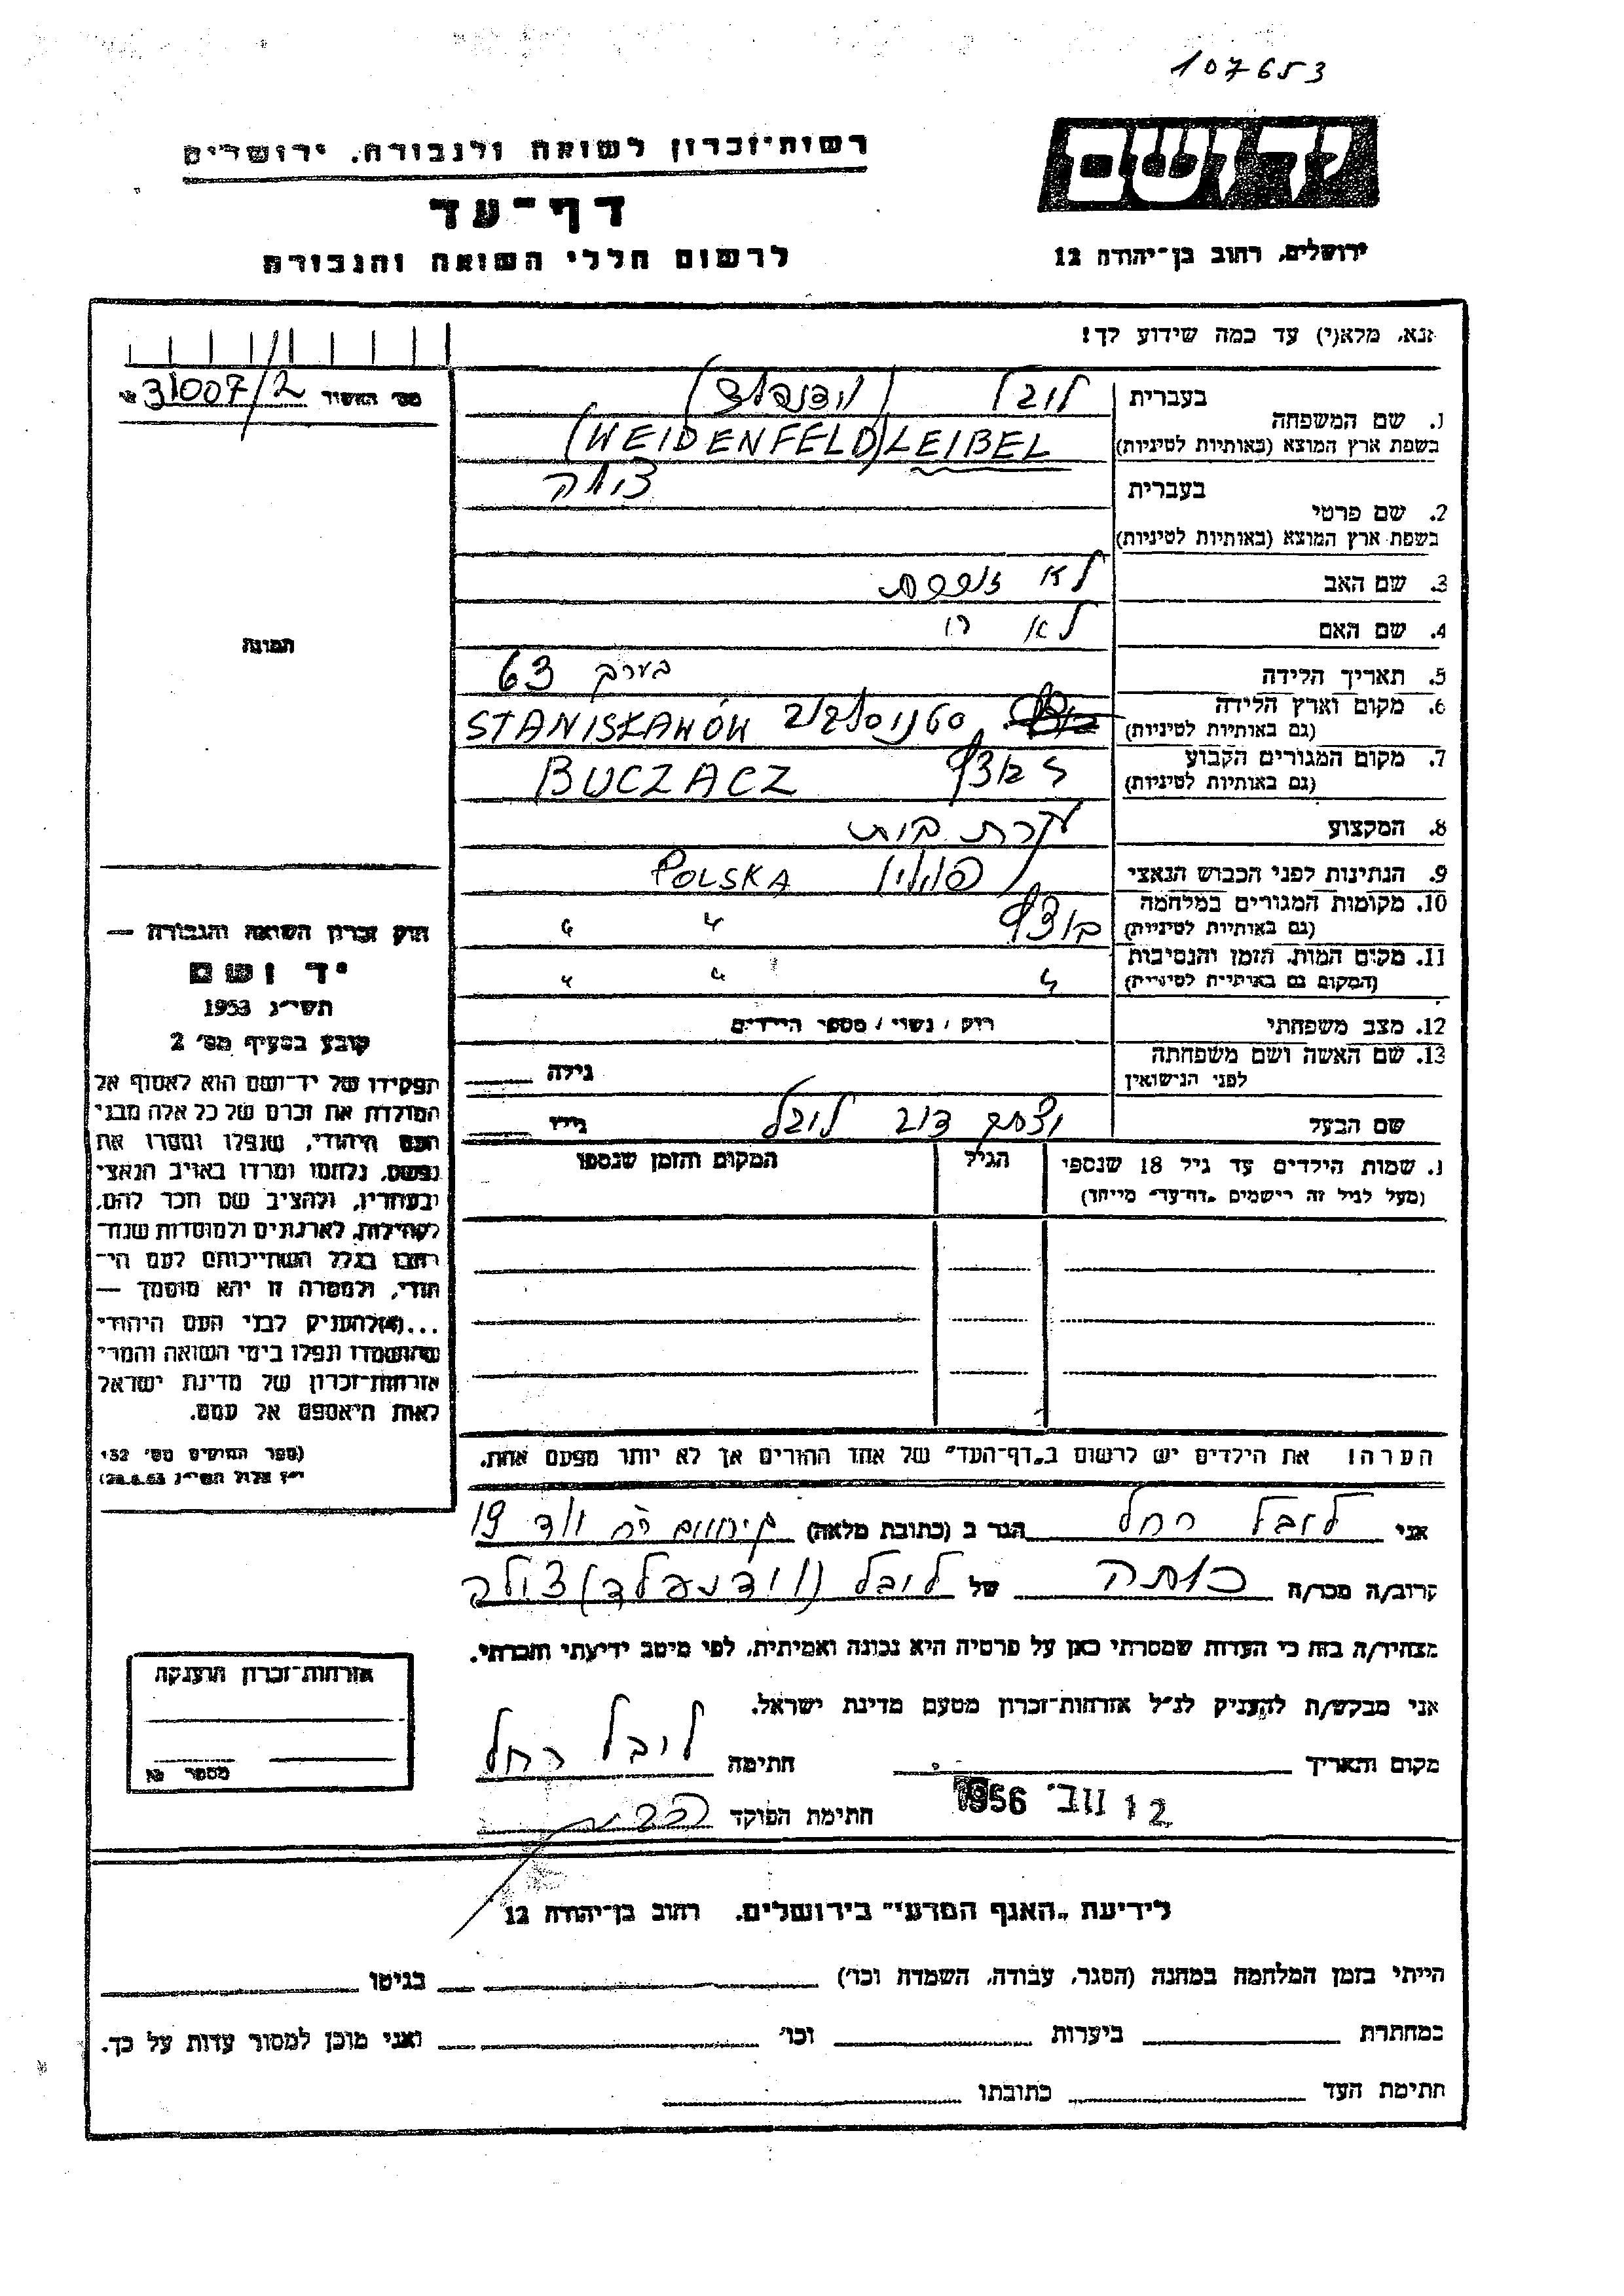 107653
יד ושם
רשות־זכרון לשואה ולגבורה, ירושלים
דף־עד
לרשום חללי השואה והגבורה
ירושלים, רחוב בן־יהודה 12
אנא, מלא(י) עד כמה שידוע לך!
מס׳ האשור 31007/2
1. שם המשפחה
בעברית ליבל (וידנפלד)
בשפת ארץ המוצא (באותיות לטיניות) (WEIDENFELD) LEIBEL
2. שם פרטי
בעברית צילה
בשפת ארץ המוצא (באותיות לטיניות)
3. שם האב לא
4. שם האם לא
5. תאריך הלידה בערך 63
6. מקום וארץ הלידה
(גם באותיות לטיניות) STANISŁAWÓW
7. מקום המגורים הקבוע
(גם באותיות לטיניות) BUCZACZ
8. המקצוע עקרת בית
9. הנתינות לפני הכבוש הנאצי פולין POLSKA
10. מקומות המגורים במלחמה
(גם באותיות לטיניות) " "
11. מקום המות, הזמן והנסיבות
(המקום גם באותיות לטיניות) " " "
12. מצב משפחתי רווק / נשוי / מספר הילדים
13. שם האשה ושם משפחתה
לפני הנישואין גילה
שם הבעל יצחק דוב ליבל גילו
תמונה
חוק זכרון השואה והגבורה —
יד ושם
תשי״ג 1953
קובע בסעיף מס׳ 2
תפקידו של יד־ושם הוא לאסוף אל
המולדת את זכרם של כל אלה מבני
העם היהודי, שנפלו ומסרו את
נפשם, נלחמו ומרדו באויב הנאצי
ובעוזריו, ולהציב שם וזכר להם,
לקהילות, לארגונים ולמוסדות שנח־
רבו בגלל השתייכותם לעם הי־
הודי, ולמטרה זו יהא מוסמך —
...להעניק לבני העם היהודי
שהושמדו ונפלו בימי השואה והמרי
אזרחות־זכרון של מדינת ישראל
לאות היאספם אל עמם.
(ספר החוקים מס׳ 132
י״ז אלול תשי״ג 28.8.53)
שמות הילדים עד גיל 18 שנספו הגיל המקום והזמן שנספו
(מעל לגיל זה רישמים „דף־עד״ מיוחד)
הערה! את הילדים יש לרשום ב„דף־העד״ של אחד ההורים אך לא יותר מפעם אחת.
אני ליבל רחל הגר ב (כתובת מלאה) 19
קרוב/ה מכר/ה של ליבל (וידנפלד) צילה
מצהיר/ה בזה כי העדות שמסרתי כאן על פרטיה היא נכונה ואמיתית, לפי מיטב ידיעתי והכרתי.
אני מבקש/ת להעניק לנ״ל אזרחות־זכרון מטעם מדינת ישראל.
מקום והתאריך חתימה ליבל רחל
12 נוב׳ 1956
חתימת הפוקד
אזרחות־זכרון הוענקה
מספר
לידיעת „האגף המדעי״ בירושלים. רחוב בן־יהודה 12
הייתי בזמן המלחמה במחנה (הסגר, עבודה, השמדה וכו׳) בגיטו
במחתרת ביערות וכו׳ ואני מוכן למסור עדות על כך.
חתימת העד כתובתו